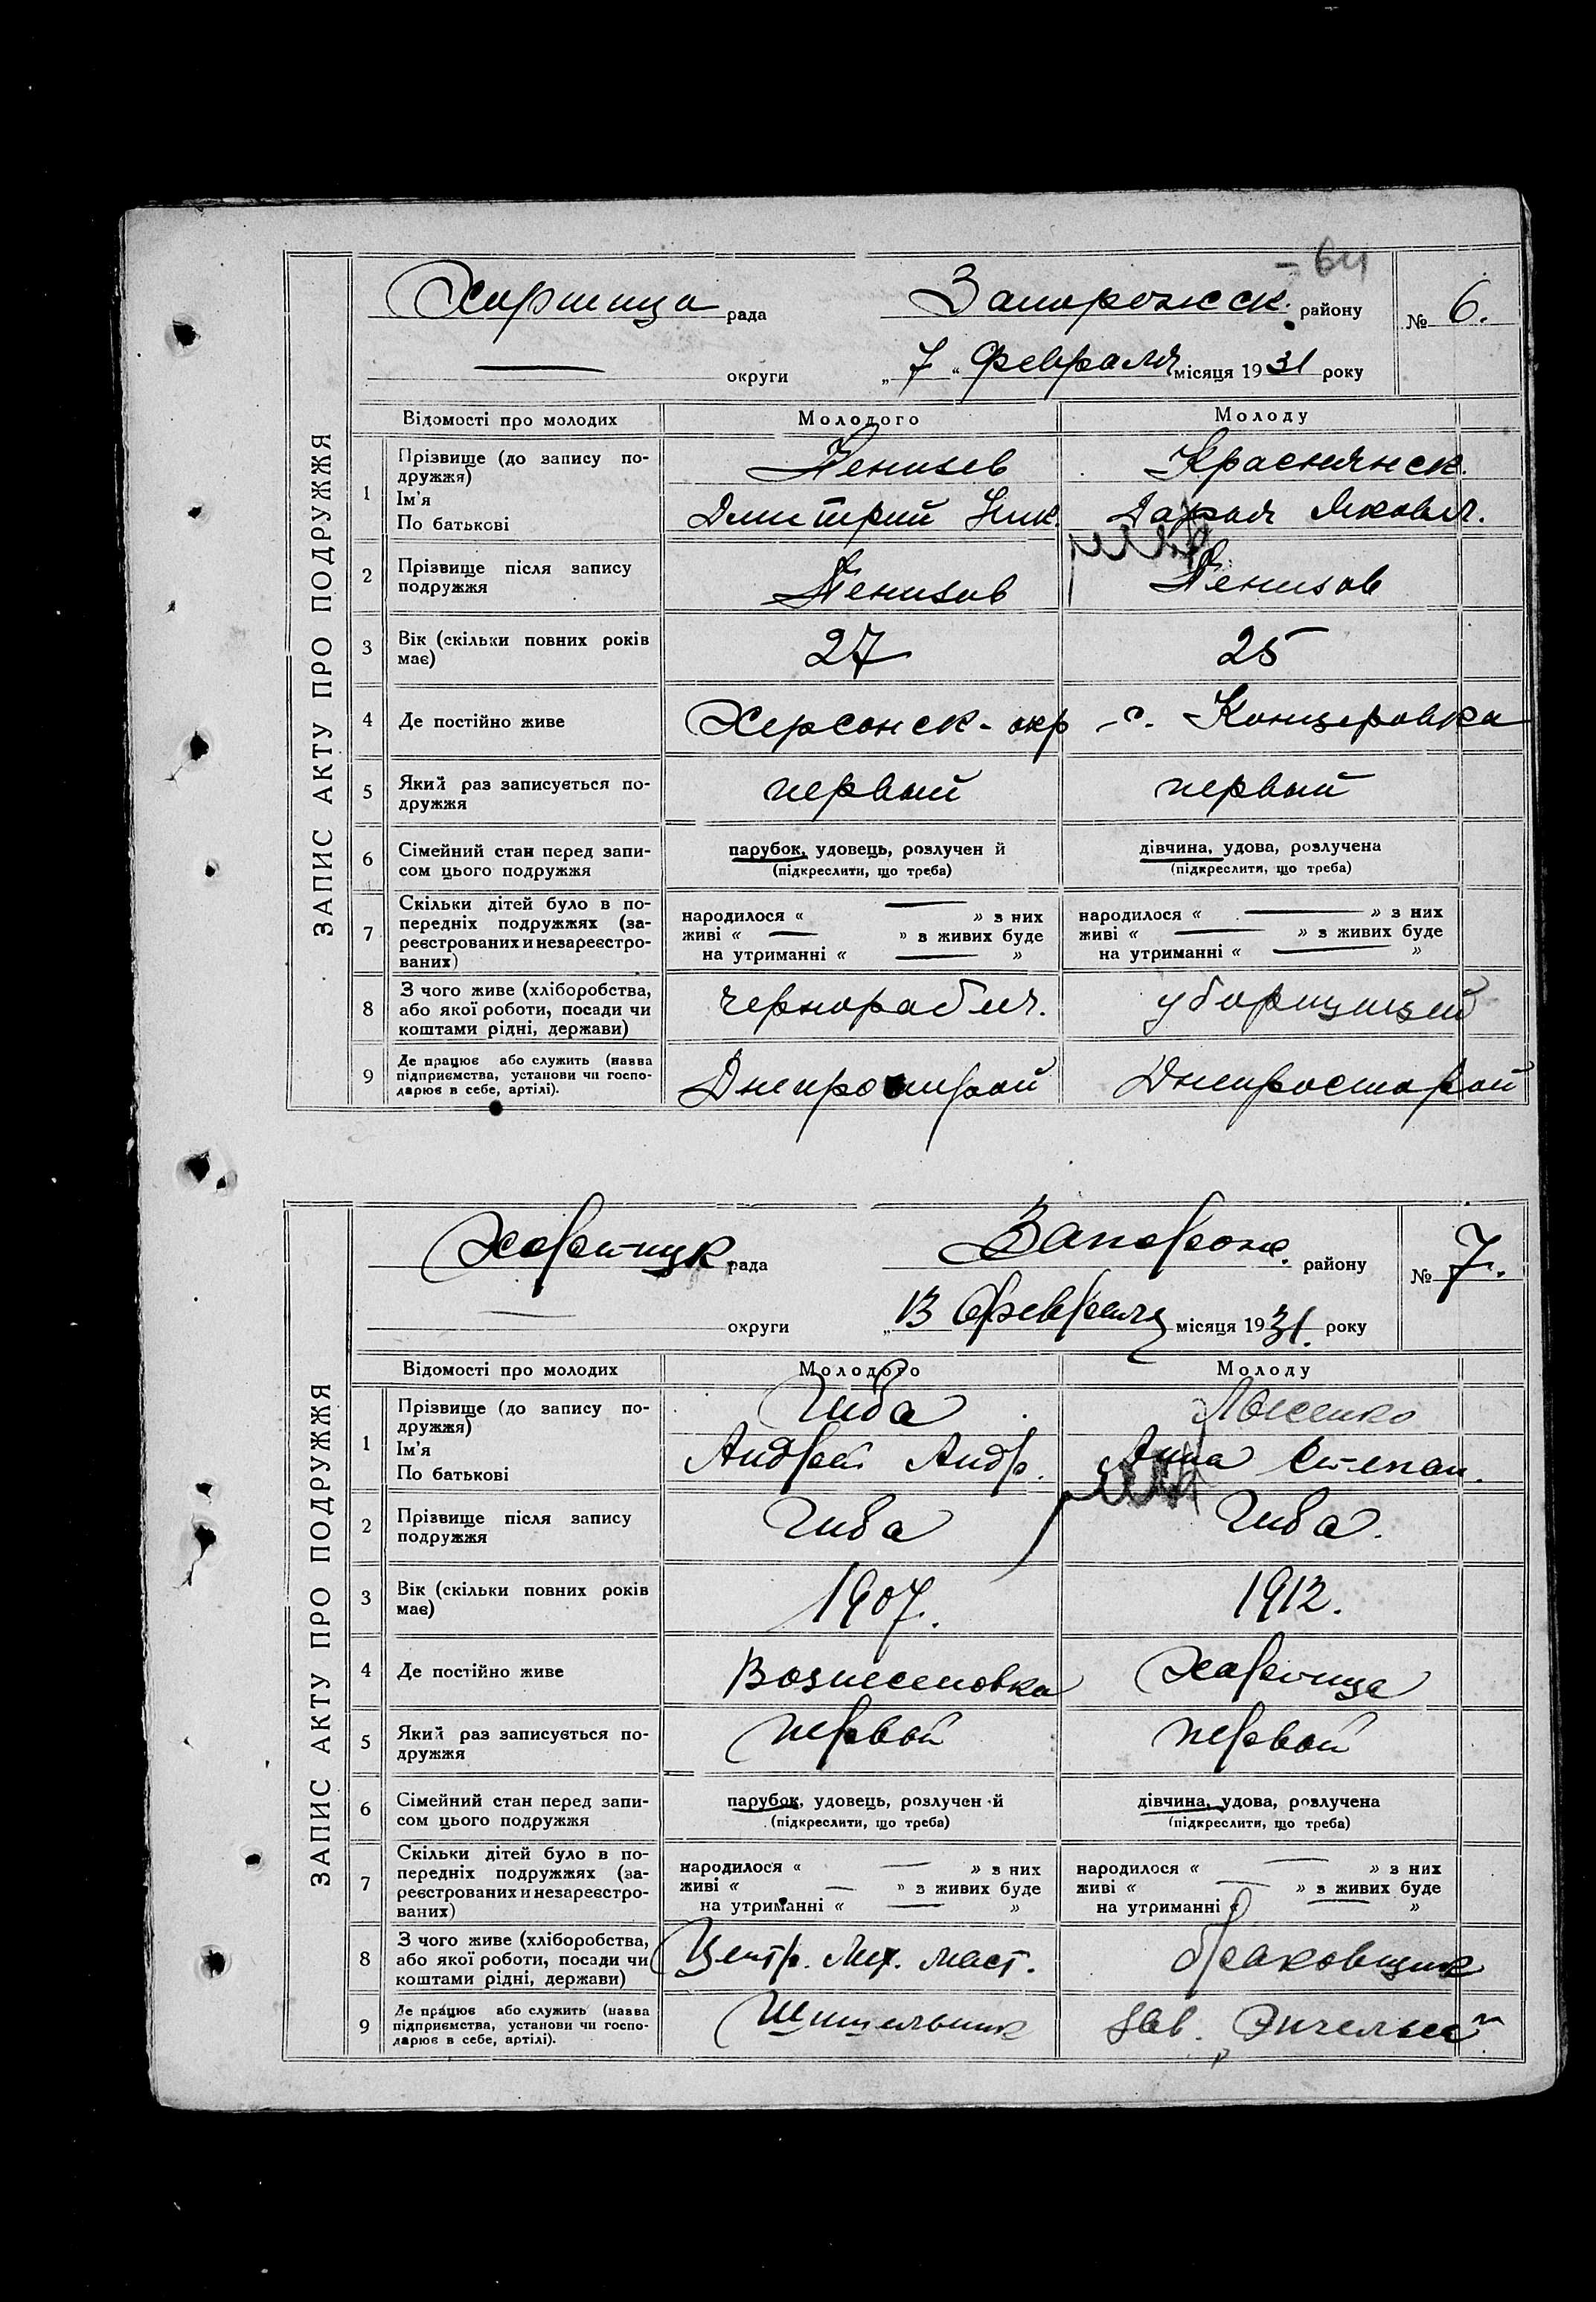 - 64
Хортица рада Запорожск. району № 6.
округи „ 7 “ Февраля місяця 1931 року
ЗАПИС АКТУ ПРО ПОДРУЖЖЯ
Відомості про молодих Молодого Молоду
1 Прізвище (до запису подружжя) Ім'я По батькові
Краснянск.
Дмитрий Ник. Дарья Яковл.
2 Прізвище після запису подружжя
3 Вік (скільки повних років має) 27 25
4 Де постійно живе Херсонск-окр с. Канцеровка
5 Який раз записується подружжя первый первый
6 Сімейний стан перед записом цього подружжя парубок, удовець, розлучен й дівчина, удова, розлучена
(підкреслити, що треба) (підкреслити, що треба)
7 Скільки дітей було в попередніх подружжях (зареєстрованих и незареєстрованих)
народилося « » з них народилося « » з них
живі « » з живих буде живі « » з живих буде
на утриманні « » на утриманні « »
8 З чого живе (хліборобства, або якої роботи, посади чи коштами рідні, держави) чернорабоч. уборщицей
9 Де працює або служить (назва підприємства, установи чи господарює в себе, артілі). Днепрострой Днепрострой
Хортицк. рада Запорож. району № 7.
округи „ 13 Февраля місяця 1931. року
ЗАПИС АКТУ ПРО ПОДРУЖЖЯ
Відомості про молодих Молодого Молоду
1 Прізвище (до запису подружжя) Ім'я По батькові
Лысенко
Андрей Андр. Анна Степан.
2 Прізвище після запису подружжя
3 Вік (скільки повних років має) 1907. 1912.
4 Де постійно живе Вознесеновка Хортица
5 Який раз записується подружжя первой первой
6 Сімейний стан перед записом цього подружжя парубок, удовець, розлучен й дівчина, удова, розлучена
(підкреслити, що треба) (підкреслити, що треба)
7 Скільки дітей було в попередніх подружжях (зареєстрованих и незареєстрованих)
народилося « » з них народилося « » з них
живі « » з живих буде живі « » з живих буде
на утриманні « » на утриманні « »
8 З чого живе (хліборобства, або якої роботи, посади чи коштами рідні, держави) Центр. Мех. маст. браковщик
9 Де працює або служить (назва підприємства, установи чи господарює в себе, артілі). зав. Энгельса